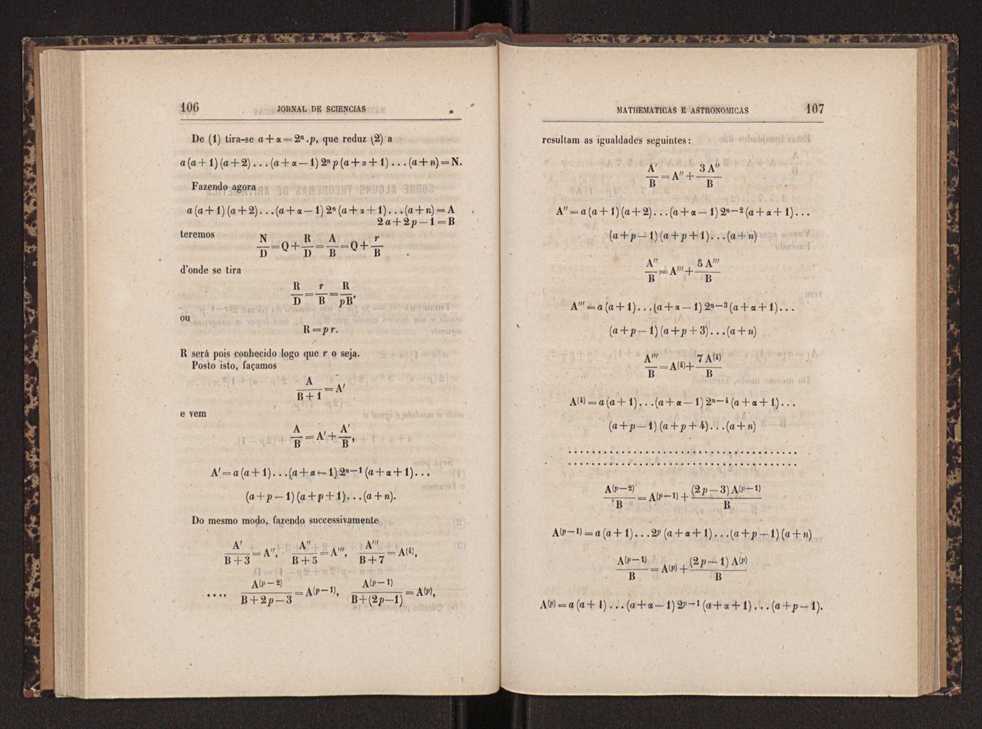 106 JORNAL DE SCIENCIAS
De (1) tira-se a + α = 2ⁿ.p, que reduz (2) a
a (a + 1) (a + 2) . . . (a + α — 1) 2ⁿ p (a + α + 1) . . . (a + n) = N.
Fazendo agora
a (a + 1) (a + 2) . . . (a + α — 1) 2ⁿ (a + α + 1) . . . (a + n) = A
2 a + 2 p — 1 = B
teremos
N/D = Q + R/D = A/B = Q + r/B
d'onde se tira
R/D = r/B = R/pB,
ou
R = p r.
R será pois conhecido logo que r o seja.
Posto isto, façamos
A/(B + 1) = A′
e vem
A/B = A′ + A′/B,
A′ = a (a + 1) . . . (a + α — 1) 2ⁿ⁻¹ (a + α + 1) . . .
(a + p — 1) (a + p + 1) . . . (a + n).
Do mesmo modo, fazendo successivamente
A′/(B + 3) = A″, A″/(B + 5) = A‴, A‴/(B + 7) = A⁽⁴⁾,
. . . . A⁽ᵖ⁻²⁾/(B + 2p — 3) = A⁽ᵖ⁻¹⁾, A⁽ᵖ⁻¹⁾/(B + (2p—1)) = A⁽ᵖ⁾,
MATHEMATICAS E ASTRONOMICAS 107
resultam as igualdades seguintes:
A′/B = A″ + 3 A″/B
A″ = a (a + 1) (a + 2) . . . (a + α — 1) 2ⁿ⁻² (a + α + 1) . . .
(a + p — 1) (a + p + 1) . . . (a + n)
A″/B = A‴ + 5 A‴/B
A‴ = a (a + 1) . . . (a + α — 1) 2ⁿ⁻³ (a + α + 1) . . .
(a + p — 1) (a + p + 3) . . . (a + n)
A‴/B = A⁽⁴⁾ + 7 A⁽⁴⁾/B
A⁽⁴⁾ = a (a + 1) . . . (a + α — 1) 2ⁿ⁻⁴ (a + α + 1) . . .
(a + p — 1) (a + p + 4) . . . (a + n)
. . . . . . . . . . . . . . . . . . . . . . . . . . . . . . . . . .
. . . . . . . . . . . . . . . . . . . . . . . . . . . . . . . . . .
A⁽ᵖ⁻²⁾/B = A⁽ᵖ⁻¹⁾ + (2p — 3) A⁽ᵖ⁻¹⁾/B
A⁽ᵖ⁻¹⁾ = a (a + 1) . . . 2ᵖ (a + α + 1) . . . (a + p — 1) (a + n)
A⁽ᵖ⁻¹⁾/B = A⁽ᵖ⁾ + (2p — 1) A⁽ᵖ⁾/B
A⁽ᵖ⁾ = a (a + 1) . . . (a + α — 1) 2ᵖ⁻¹ (a + α + 1) . . . (a + p — 1).